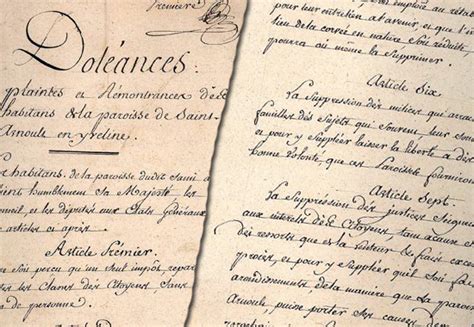 Première
Doléances
plaintes et Rémontrances des
habitans de la paroisse de Saint
Arnoult en yveline
habitans de la paroisse dudit Saint
humblement Sa Majesté les
et les députés aux Etats Généraux
articles ci après
Article Premier
Soit perçu qu'un Seul impôt, repar
les Claves des Citoyens, Sans
de personne
employé au ret
pour leur entretien a l'avenir, et que l'i
lieu de la corvée en nature Soit réduit
pourra ou même la Supprimer
Article Six
La Suppression des milices qui arra
familles des Sujets qui Souvent leur Son
et pour y Suppléer laisser la liberté a
bonne volonté, que ces paroisses fourniron
Article Sept
La Suppression des justices Seigneu
aux interets des Citoyens, tant au
des ressorts que par la hauteur des fraix exces
procès, et pour y Suppléer qu'il Soit fai
arrondissements de la manière que la
Arnoult, puisse porter Ses causes de